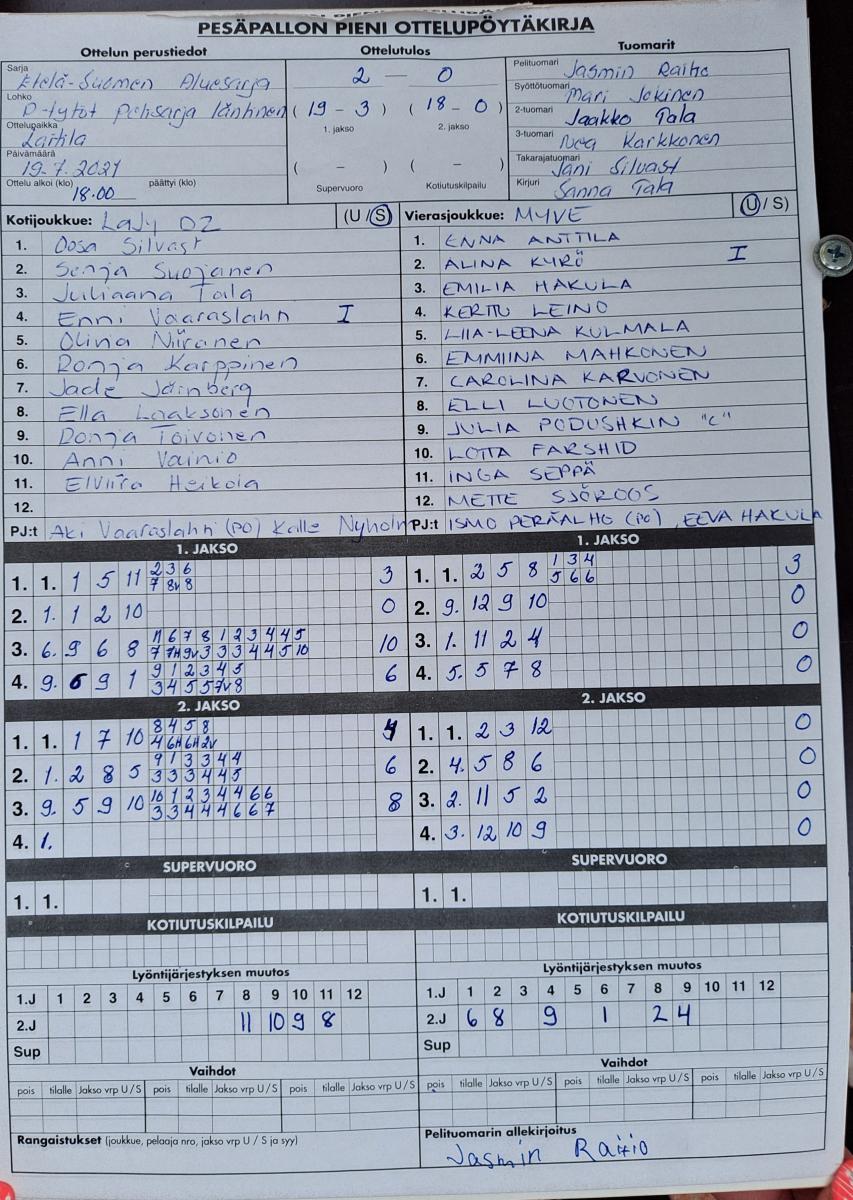 PESÄPALLON PIENI OTTELUPÖYTÄKIRJA
Ottelun perustiedot Ottelutulos Tuomarit
Sarja Etelä-Suomen Aluesarja
Lohko D-tytöt Pohsarja läntinen
Ottelupaikka Laitila
Päivämäärä 19.7.2021
Ottelu alkoi (klo) 18.00 päättyi (klo)
2 — 0
(19 - 3) (18 - 0)
1. jakso 2. jakso
( – ) ( – )
Supervuoro Kotiutuskilpailu
Pelituomari Jasmin Raitio
Syöttötuomari Mari Jokinen
2-tuomari Jaakko Tala
3-tuomari Neea Karkkonen
Takarajatuomari Jani Silvast
Kirjuri Sanna Tala
Kotijoukkue: LaJy D2 (U / S)
1. Oosa Silvast
2. Senja Suojanen
3. Juliaana Tala
4. Enni Vaaraslahti I
5. Olina Niiranen
6. Ronja Karppinen
7. Jade Järnberg
8. Ella Laaksonen
9. Ronja Toivonen
10. Anni Vainio
11. Elviira Heikola
12.
PJ:t Aki Vaaraslahti (PO) Kalle Nyholm
Vierasjoukkue: MYVE (U / S)
1. ENNA ANTTILA
2. ALINA KYRÖ I
3. EMILIA HAKULA
4. KERTTU LEINO
5. LIIA-LEENA KULMALA
6. EMMIINA MAHKONEN
7. CAROLINA KARVONEN
8. ELLI LUOTONEN
9. JULIA PODUSHKIN "C"
10. LOTTA FARSHID
11. INGA SEPPÄ
12. METTE SJÖROOS
PJ:t ISMO PERÄALHO (PO), EEVA HAKULA
1. JAKSO
1. 1. 1 5 11 2 3 6 3
7 8v 8
2. 1. 1 2 10 0
3. 6. 9 6 8 11 6 7 8 1 2 3 4 4 5 10
7 7H 9v 3 3 3 4 4 5 10
4. 9. 6 9 1 9 1 2 3 4 5 6
3 4 5 5 7v 8
1. JAKSO
1. 1. 2 5 8 1 3 4 3
5 6 6
2. 9. 12 9 10 0
3. 1. 11 2 4 0
4. 5. 5 7 8 0
2. JAKSO
1. 1. 1 7 10 8 4 5 8 4
4 6H 6H 2v
2. 1. 2 8 5 9 1 3 3 4 4 6
3 3 3 4 4 5
3. 9. 5 9 10 10 1 2 3 4 4 6 6 8
3 3 4 4 4 6 6 7
4. 1.
2. JAKSO
1. 1. 2 3 12 0
2. 4. 5 8 6 0
3. 2. 11 5 2 0
4. 3. 12 10 9 0
SUPERVUORO SUPERVUORO
1. 1. 1. 1.
KOTIUTUSKILPAILU KOTIUTUSKILPAILU
Lyöntijärjestyksen muutos
1.J 1 2 3 4 5 6 7 8 9 10 11 12
2.J 11 10 9 8
Sup
Lyöntijärjestyksen muutos
1.J 1 2 3 4 5 6 7 8 9 10 11 12
2.J 6 8 9 1 2 4
Sup
Vaihdot Vaihdot
pois tilalle Jakso vrp U / S pois tilalle Jakso vrp U / S pois tilalle Jakso vrp U / S
pois tilalle Jakso vrp U / S pois tilalle Jakso vrp U / S pois tilalle Jakso vrp U / S
Rangaistukset (joukkue, pelaaja nro, jakso vrp U / S ja syy)
Pelituomarin allekirjoitus
Jasmin Raitio